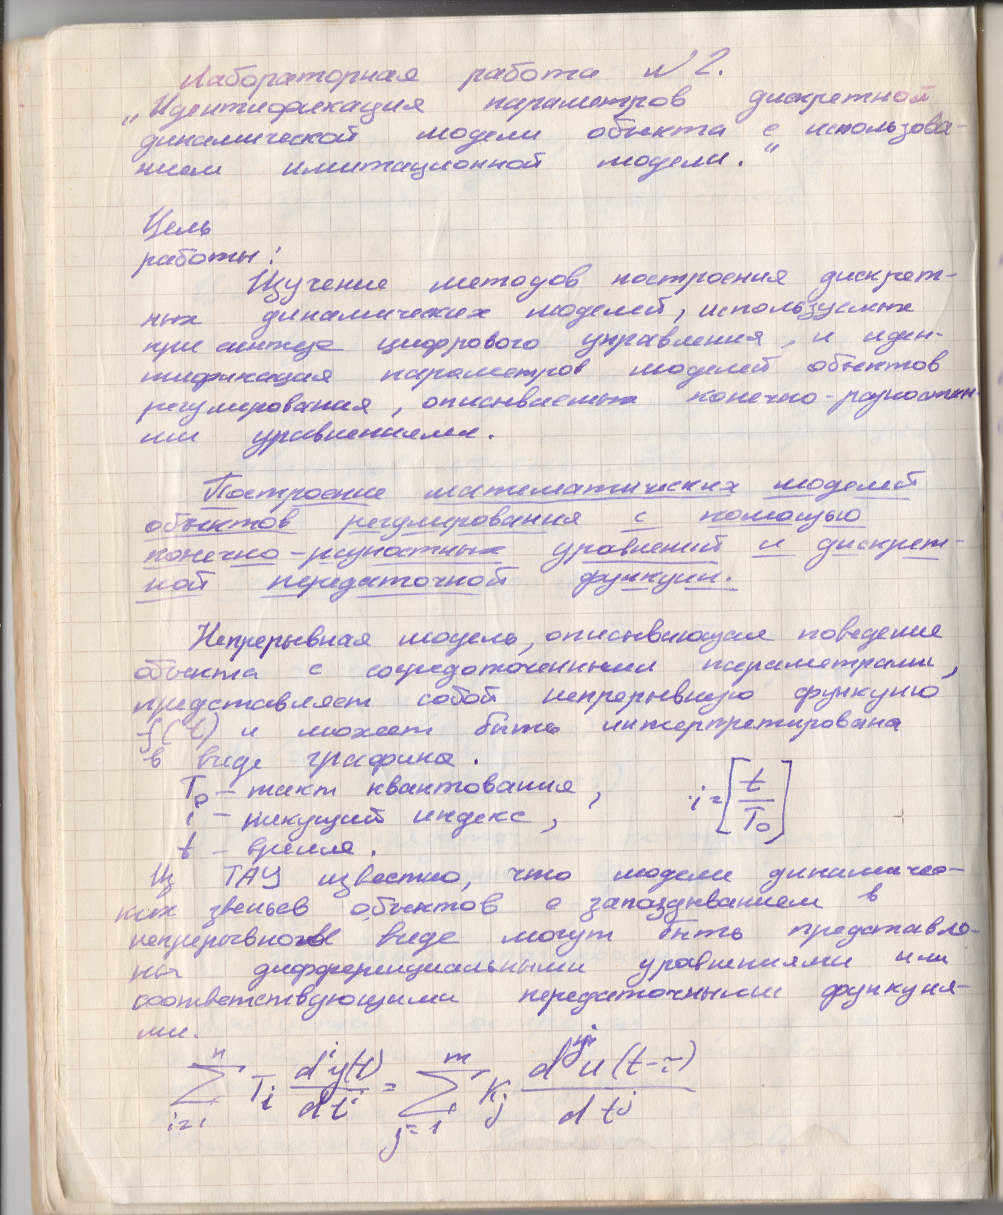 Лабораторная работа №2.
„Идентификация параметров дискретной
динамической модели объекта с использова-
нием имитационной модели.“
Цель
работы:
Изучение методов построения дискрет-
ных динамических моделей, используемых
при синтезе цифрового управления, и иден-
тификация параметров моделей объектов
регулирования, описываемых конечно-разностны-
ми уравнениями.
Построение математических моделей
объектов регулирования с помощью
конечно-разностных уравнений и дискрет-
ной передаточной функции.
Непрерывная модель, описывающая поведение
объекта с сосредоточенными параметрами,
представляет собой непрерывную функцию
f(t) и может быть интерпретирована
в виде графика.
T₀ – такт квантования, i = [t/T₀]
i – текущий индекс,
t – время.
Из ТАУ известно, что модели динамичес-
ких звеньев объектов с запаздыванием в
непрерывном виде могут быть представле-
ны дифференциальными уравнениями или
соответствующими передаточными функция-
ми.
∑ⁿᵢ₌₁ Tᵢ dⁱy(t)/dtⁱ = ∑ᵐⱼ₌₁ Kⱼ dʲu(t-τ)/dtʲ